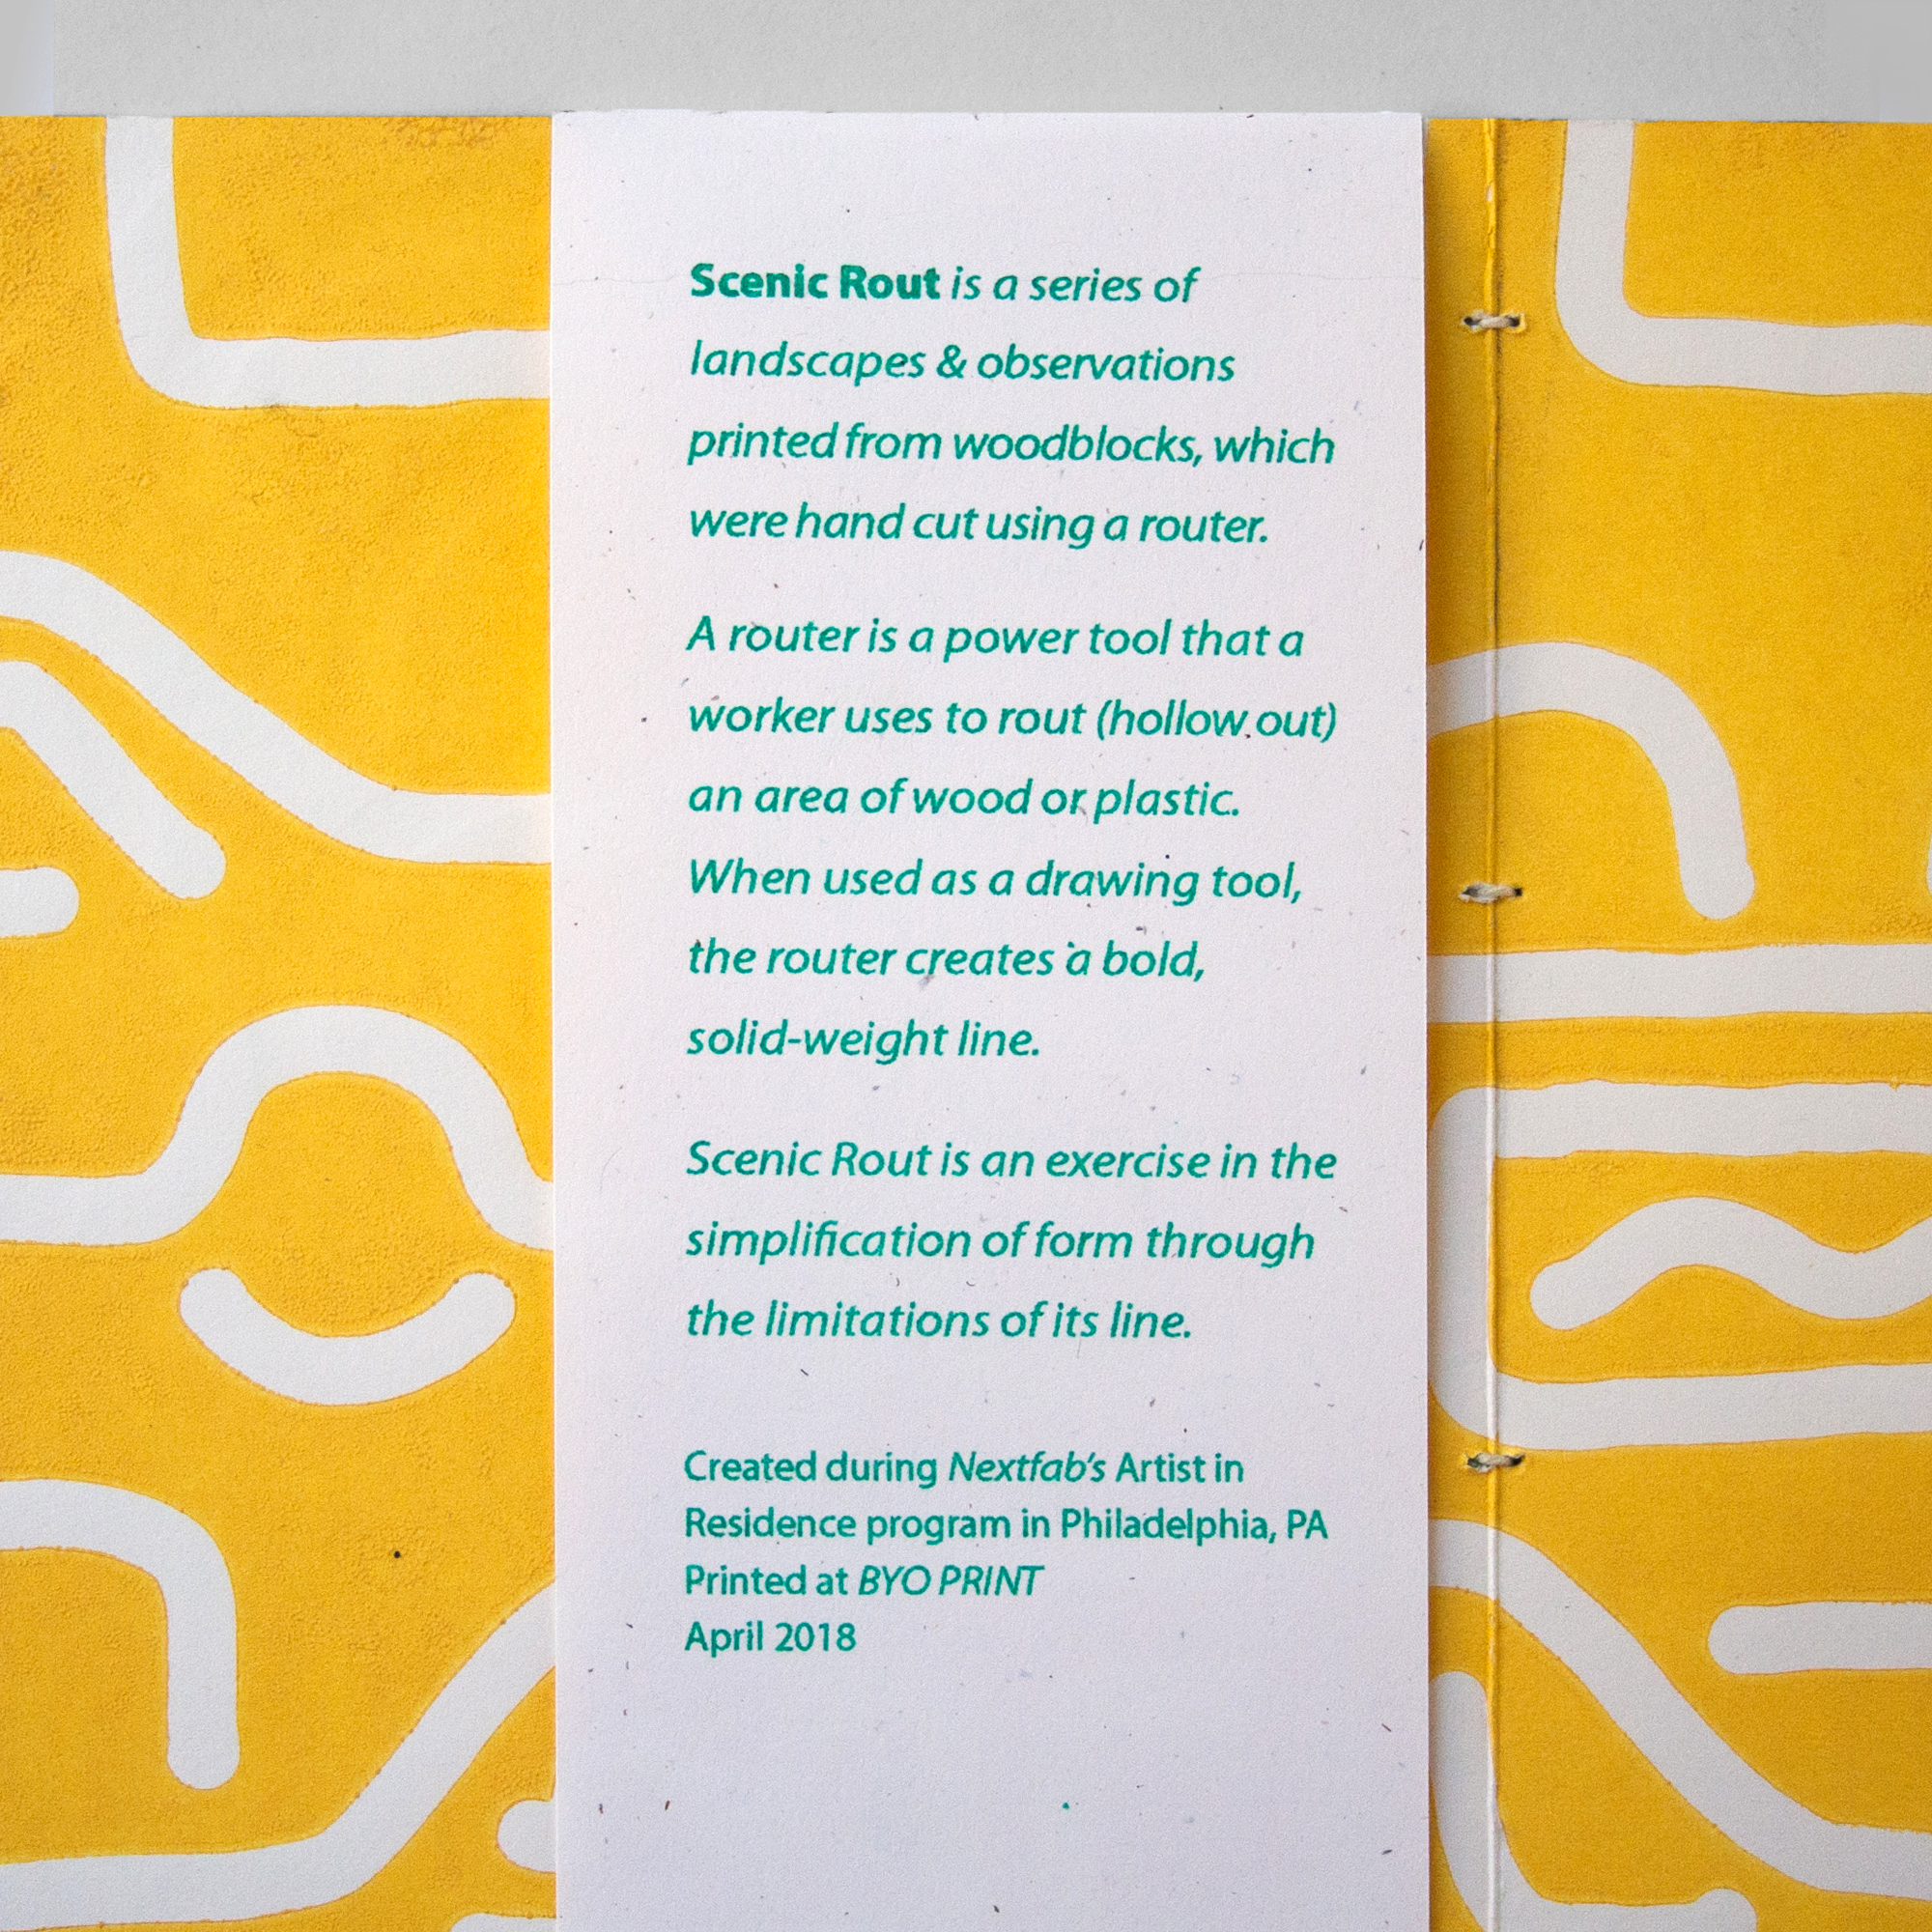 Scenic Rout is a series of
landscapes & observations
printed from woodblocks, which
were hand cut using a router.
A router is a power tool that a
worker uses to rout (hollow out)
an area of wood or plastic.
When used as a drawing tool,
the router creates a bold,
solid-weight line.
Scenic Rout is an exercise in the
simplification of form through
the limitations of its line.
Created during Nextfab's Artist in
Residence program in Philadelphia, PA
Printed at BYO PRINT
April 2018